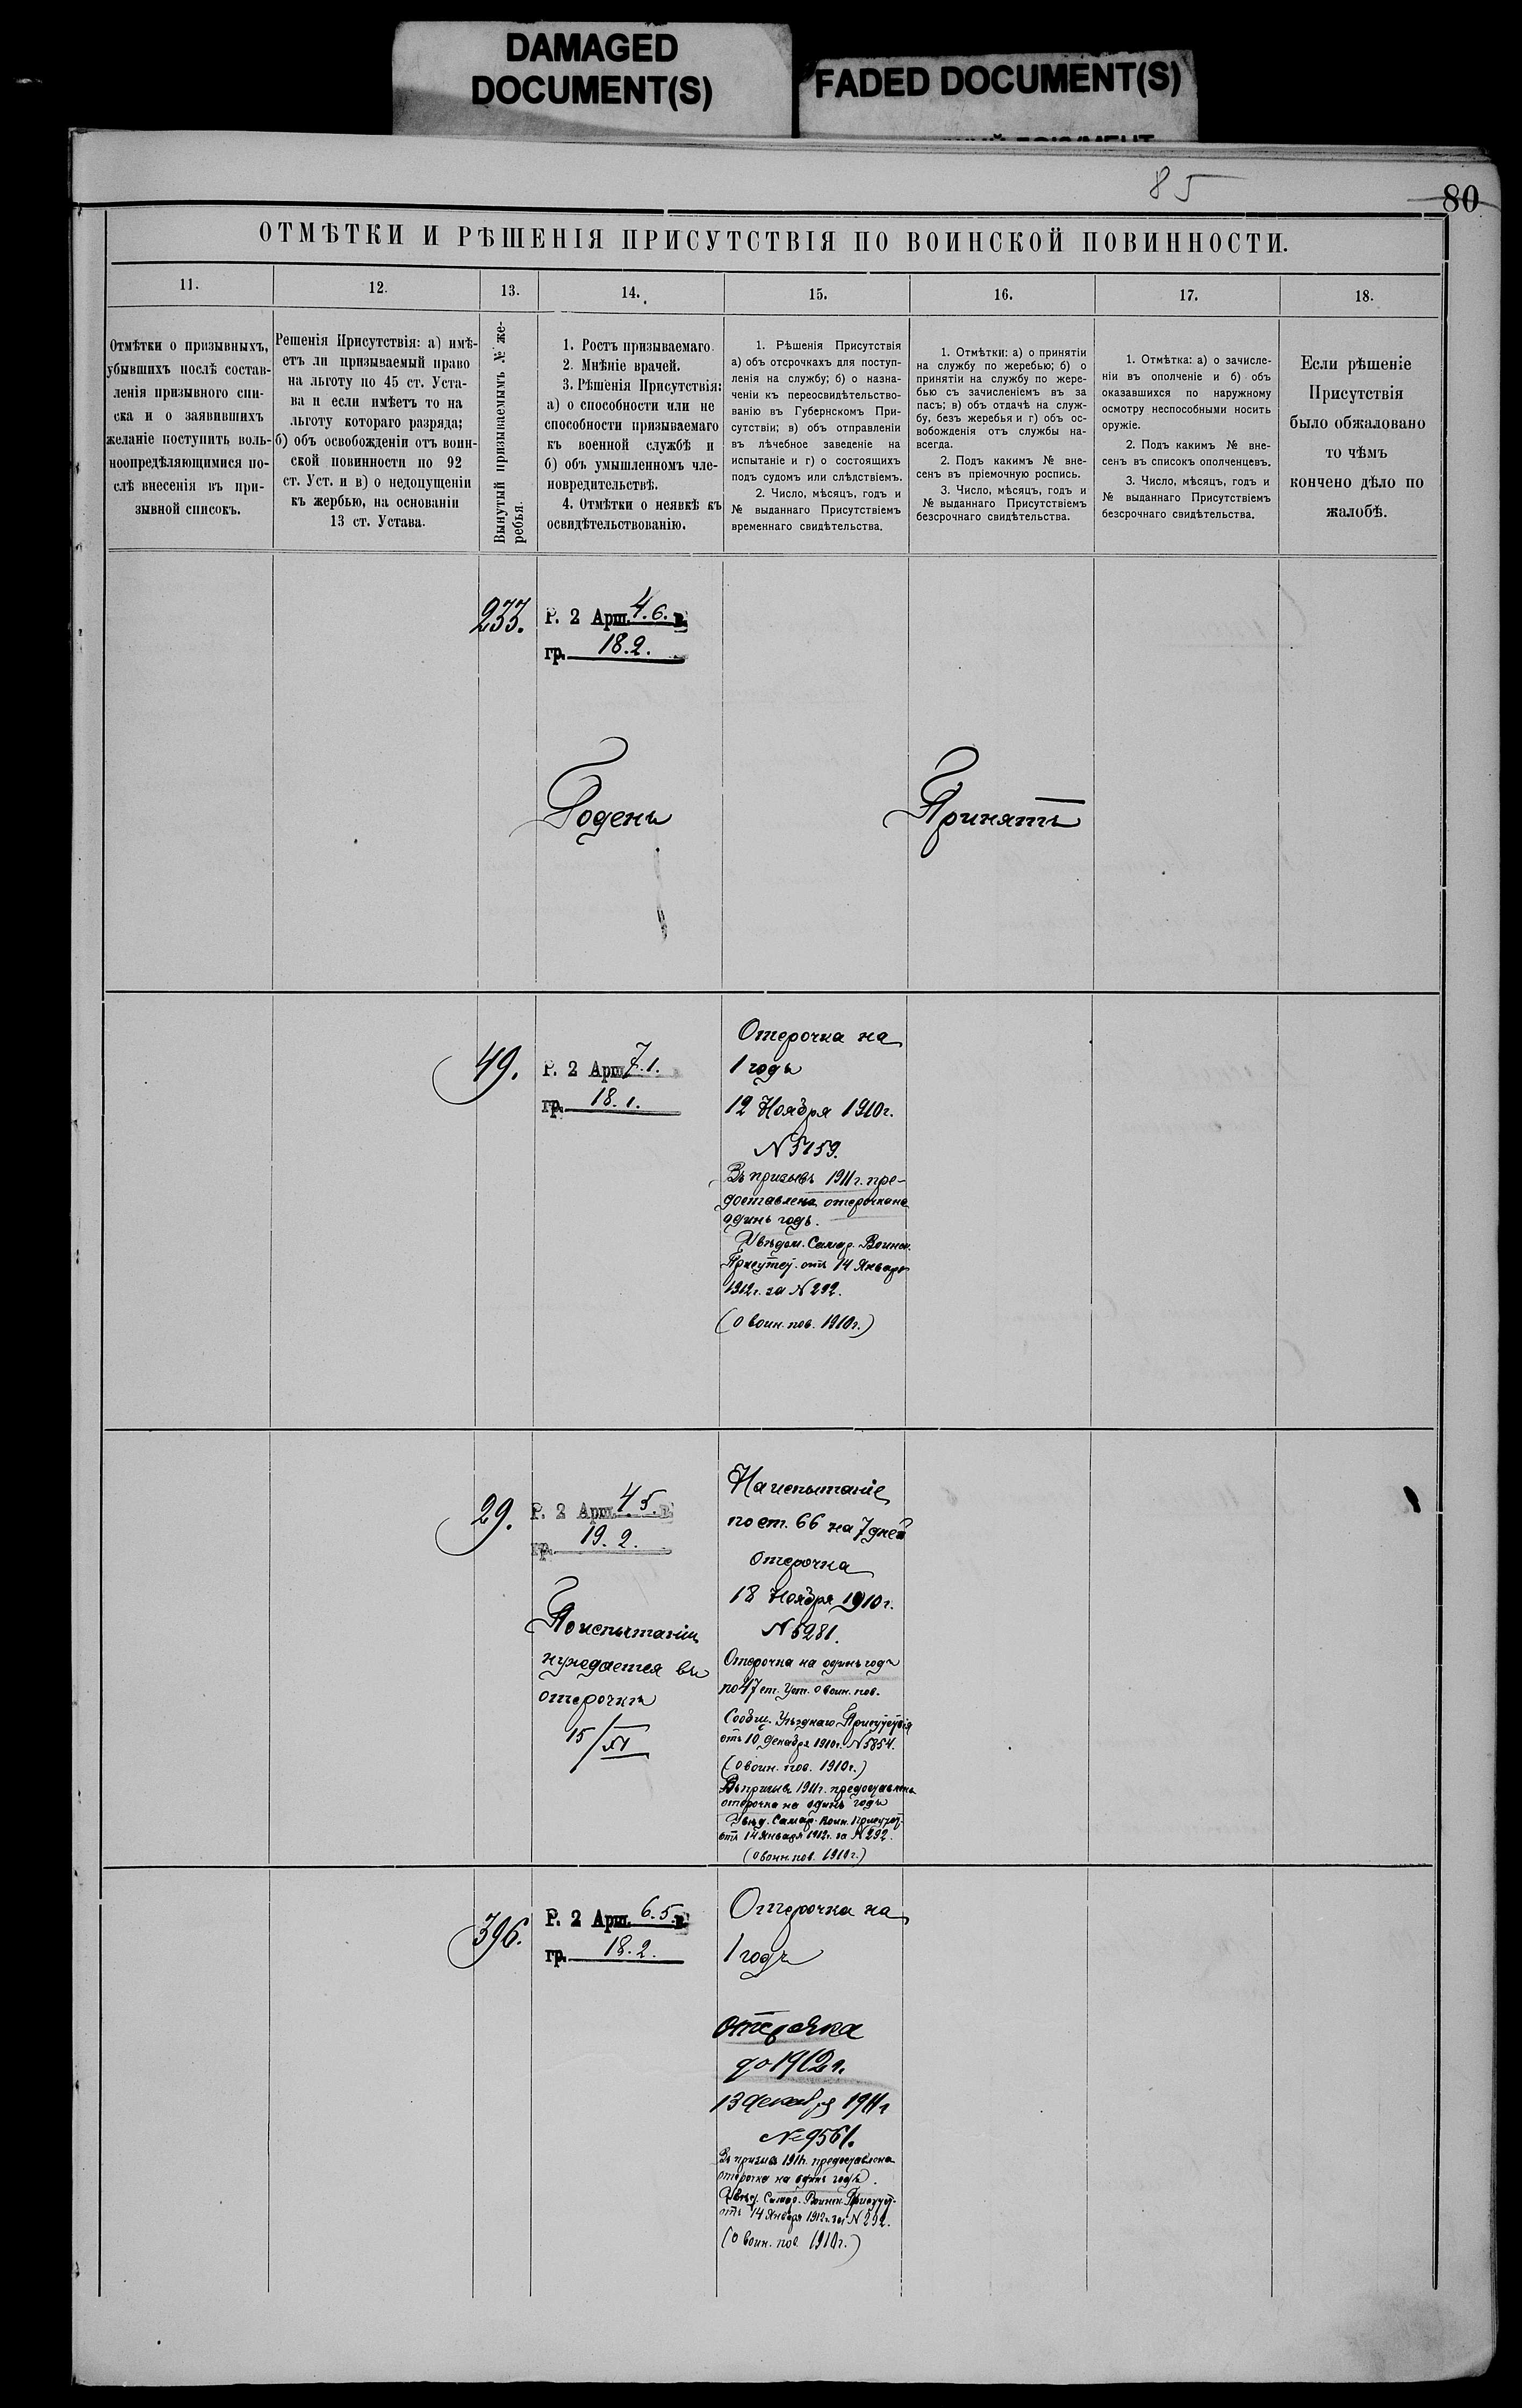 DAMAGED
DOCUMENT(S)
FADED DOCUMENT(S)
85
80
ОТМѢТКИ И РѢШЕНІЯ ПРИСУТСТВІЯ ПО ВОИНСКОЙ ПОВИННОСТИ.
11.
12.
13.
14.
15.
16.
17.
18.
Отмѣтки о призывныхъ,
убывшихъ послѣ состав-
ленія призывного спи-
ска и о заявившихъ
желаніе поступить воль-
ноопредѣляющимися по-
слѣ внесенія въ при-
зывной списокъ.
Решенія Присутствія: а) имѣ-
етъ ли призываемый право
на льготу по 45 ст. Уста-
ва и если имѣетъ то на
льготу котораго разряда;
б) объ освобожденіи отъ воин-
ской повинности по 92
ст. Уст. и в) о недопущеніи
къ жербью, на основаніи
13 ст. Устава.
Вынутый призываемымъ № же-
ребья.
1. Ростъ призываемаго.
2. Мнѣніе врачей.
3. Рѣшенія Присутствія:
а) о способности или не
способности призываемаго
къ военной службѣ и
б) объ умышленномъ чле-
новредительствѣ.
4. Отмѣтки о неявкѣ къ
освидѣтельствованію.
1. Рѣшенія Присутствія
а) объ отсрочкахъ для поступ-
ленія на службу; б) о назна-
ченіи къ переосвидѣтельство-
ванію въ Губернскомъ При-
сутствіи; в) объ отправленіи
въ лѣчебное заведеніе на
испытаніе и г) о состоящихъ
подъ судомъ или слѣдствіемъ.
2. Число, мѣсяцъ, годъ и
№ выданнаго Присутствіемъ
временнаго свидѣтельства.
1. Отмѣтки: а) о принятіи
на службу по жеребью; б) о
принятіи на службу по жере-
бью съ зачисленіемъ въ за
пасъ; в) объ отдачѣ на служ-
бу, безъ жеребья и г) объ ос-
вобожденія отъ службы на-
всегда.
2. Подъ какимъ № вне-
сенъ въ пріемочную роспись.
3. Число, мѣсяцъ, годъ и
№ выданнаго Присутствіемъ
безсрочнаго свидѣтельства.
1. Отмѣтка: а) о зачисле-
ніи въ ополченіе и б) объ
оказавшихся по наружному
осмотру неспособными носить
оружіе.
2. Подъ какимъ № вне-
сенъ въ списокъ ополченцевъ.
3. Число, мѣсяцъ, годъ и
№ выданнаго Присутствіемъ
безсрочнаго свидѣтельства.
Если рѣшеніе
Присутствія
было обжаловано
то чѣмъ
кончено дѣло по
жалобѣ.
233.
Р. 2 Арш. 4.6. в.
гр. 18.2.
Годенъ
Принятъ
49.
Р. 2 Арш. 7.1.
гр. 18.1.
Отсрочка на
1 годъ
12 Ноября 1910г.
N 5159.
Въ призывъ 1911г. пре-
доставлена отсрочка на
одинъ годъ.
Увѣдом. Самар. Воинск.
Присутс. отъ 14 Января
1912г. за N 292.
(о воин. пов. 1910г.)
29.
Р. 2 Арш. 4 5. в.
гр. 19. 2.
По испытаніи
нуждается въ
отсрочкѣ
15/XI
На испытаніе
по ст. 66 на 7 дней
Отсрочка
18 Ноября 1910г.
N 5281.
Отсрочка на одинъ годъ
по 47 ст. Уст. о воин. пов.
Сообщ. Уѣзднаго Присутствія
отъ 10 декабря 1910г. N 5854.
(о воин. пов. 1910г.)
Въ призывъ 1911г. предоставлена
отсрочка на одинъ годъ
Увѣд. Самар. Воин. Присутст.
отъ 14 Января 1912г. за N 292.
(о воин. пов. 1910г.)
396.
Р. 2 Арш. 6.5. в.
гр. 18.2.
Отсрочка на
1 годъ
Отсрочка
до 1912г.
13 декабря 1911г
№ 9561.
Въ призывъ 1911г. предоставлена
отсрочка на одинъ годъ.
Увѣд. Самар. Воинск. Присутст.
отъ 14 Января 1912г. за N 292.
(о воин. пов. 1910г.)